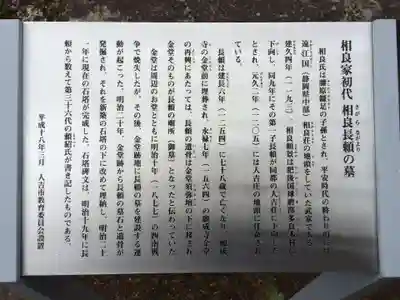 相良家初代 相良長頼の墓
さがら ながより
相良氏は藤原鎌足の子孫とされ、平安時代の終わり頃には
遠江国(静岡県中部)相良荘の地頭をしていた武家である。
建久四年(一一九三)、相良頼景は肥後国球磨郡多良木村に
下向し、同九年にその第一子長頼が同郡の人吉荘に下向した
とされ、元久二年(一二〇五)には人吉庄の地頭に任命され
ている。
長頼は建長六年(一二五四)に七十八歳で亡くなり、願成
寺の金堂前に埋葬され、永禄七年(一五六四)の願成寺金堂
の再興にあたっては、長頼の遺骨は金堂須弥壇の下に移され
金堂そのものが長頼の廟所(御墓)となったと伝わっていた
金堂は周辺のお堂とともに明治十年(一八七七)の西南戦
争で焼失したが、その後、金堂跡地に長頼の墓を建設する運
動が起こった。明治二十年、金堂跡から長頼の墓石と遺骨が
発掘され、それを新築の石塔の下に改めて埋納し、明治二十
一年に現在の石塔が完成した。石塔碑文は、明治十九年に長
頼から数えて第三十六代の頼紹氏が書き記したものである。
平成十八年三月 人吉市教育委員会設置